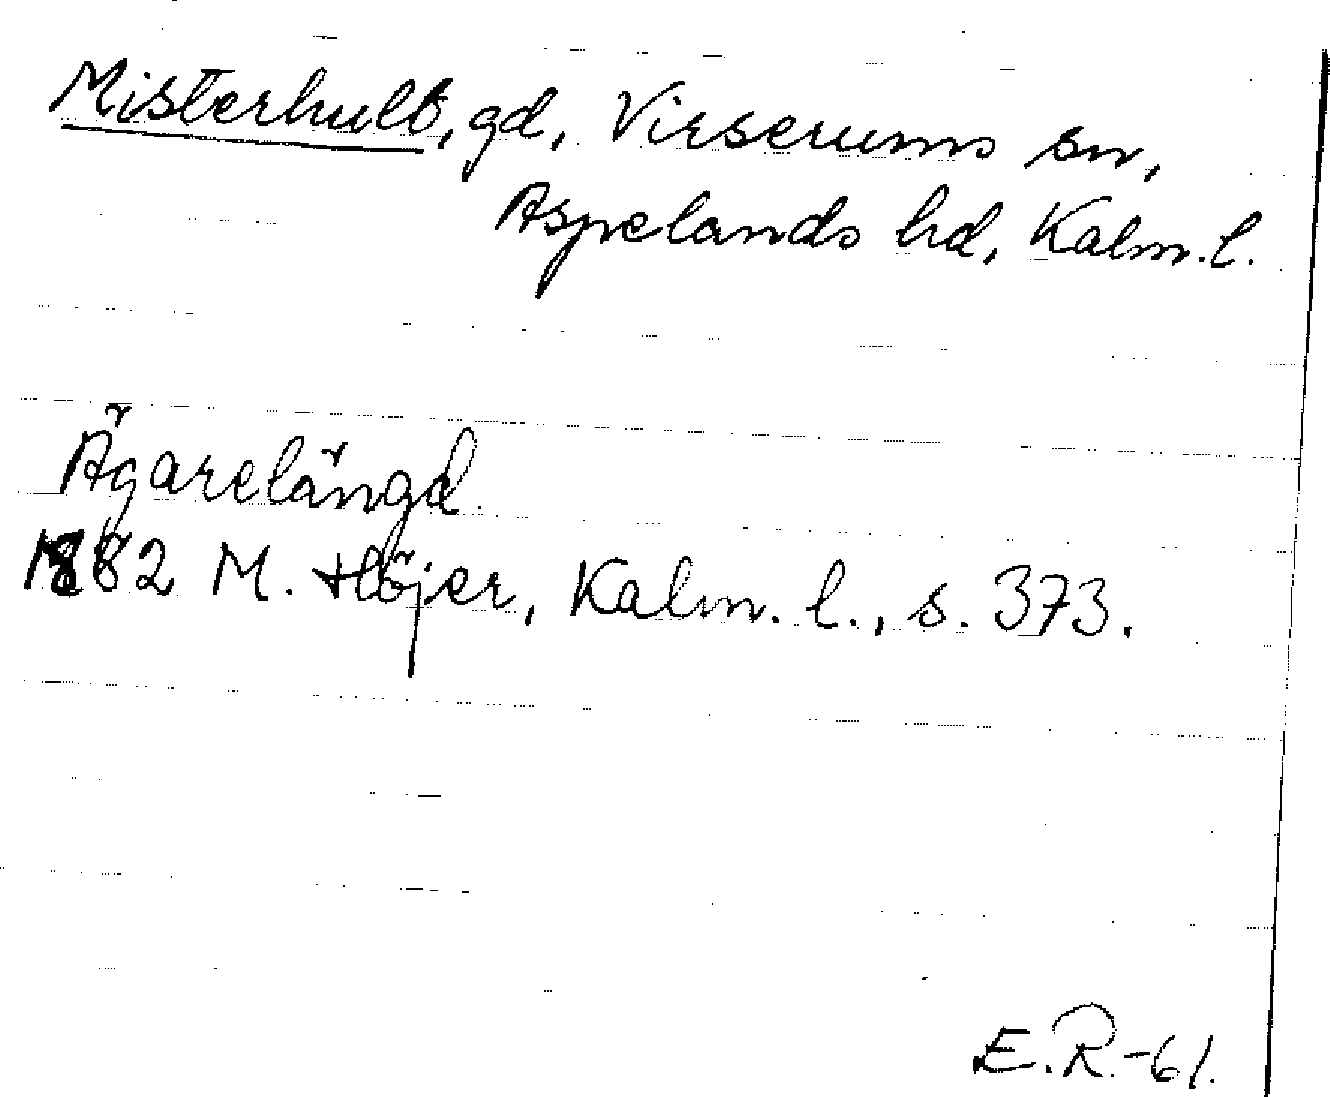 Misterhult, gd, Virserums sn,
Aspelands hd, Kalm. l.
Ägarelängd.
1882 M. Höjer, Kalm. l., s. 373.
E.R.-61.